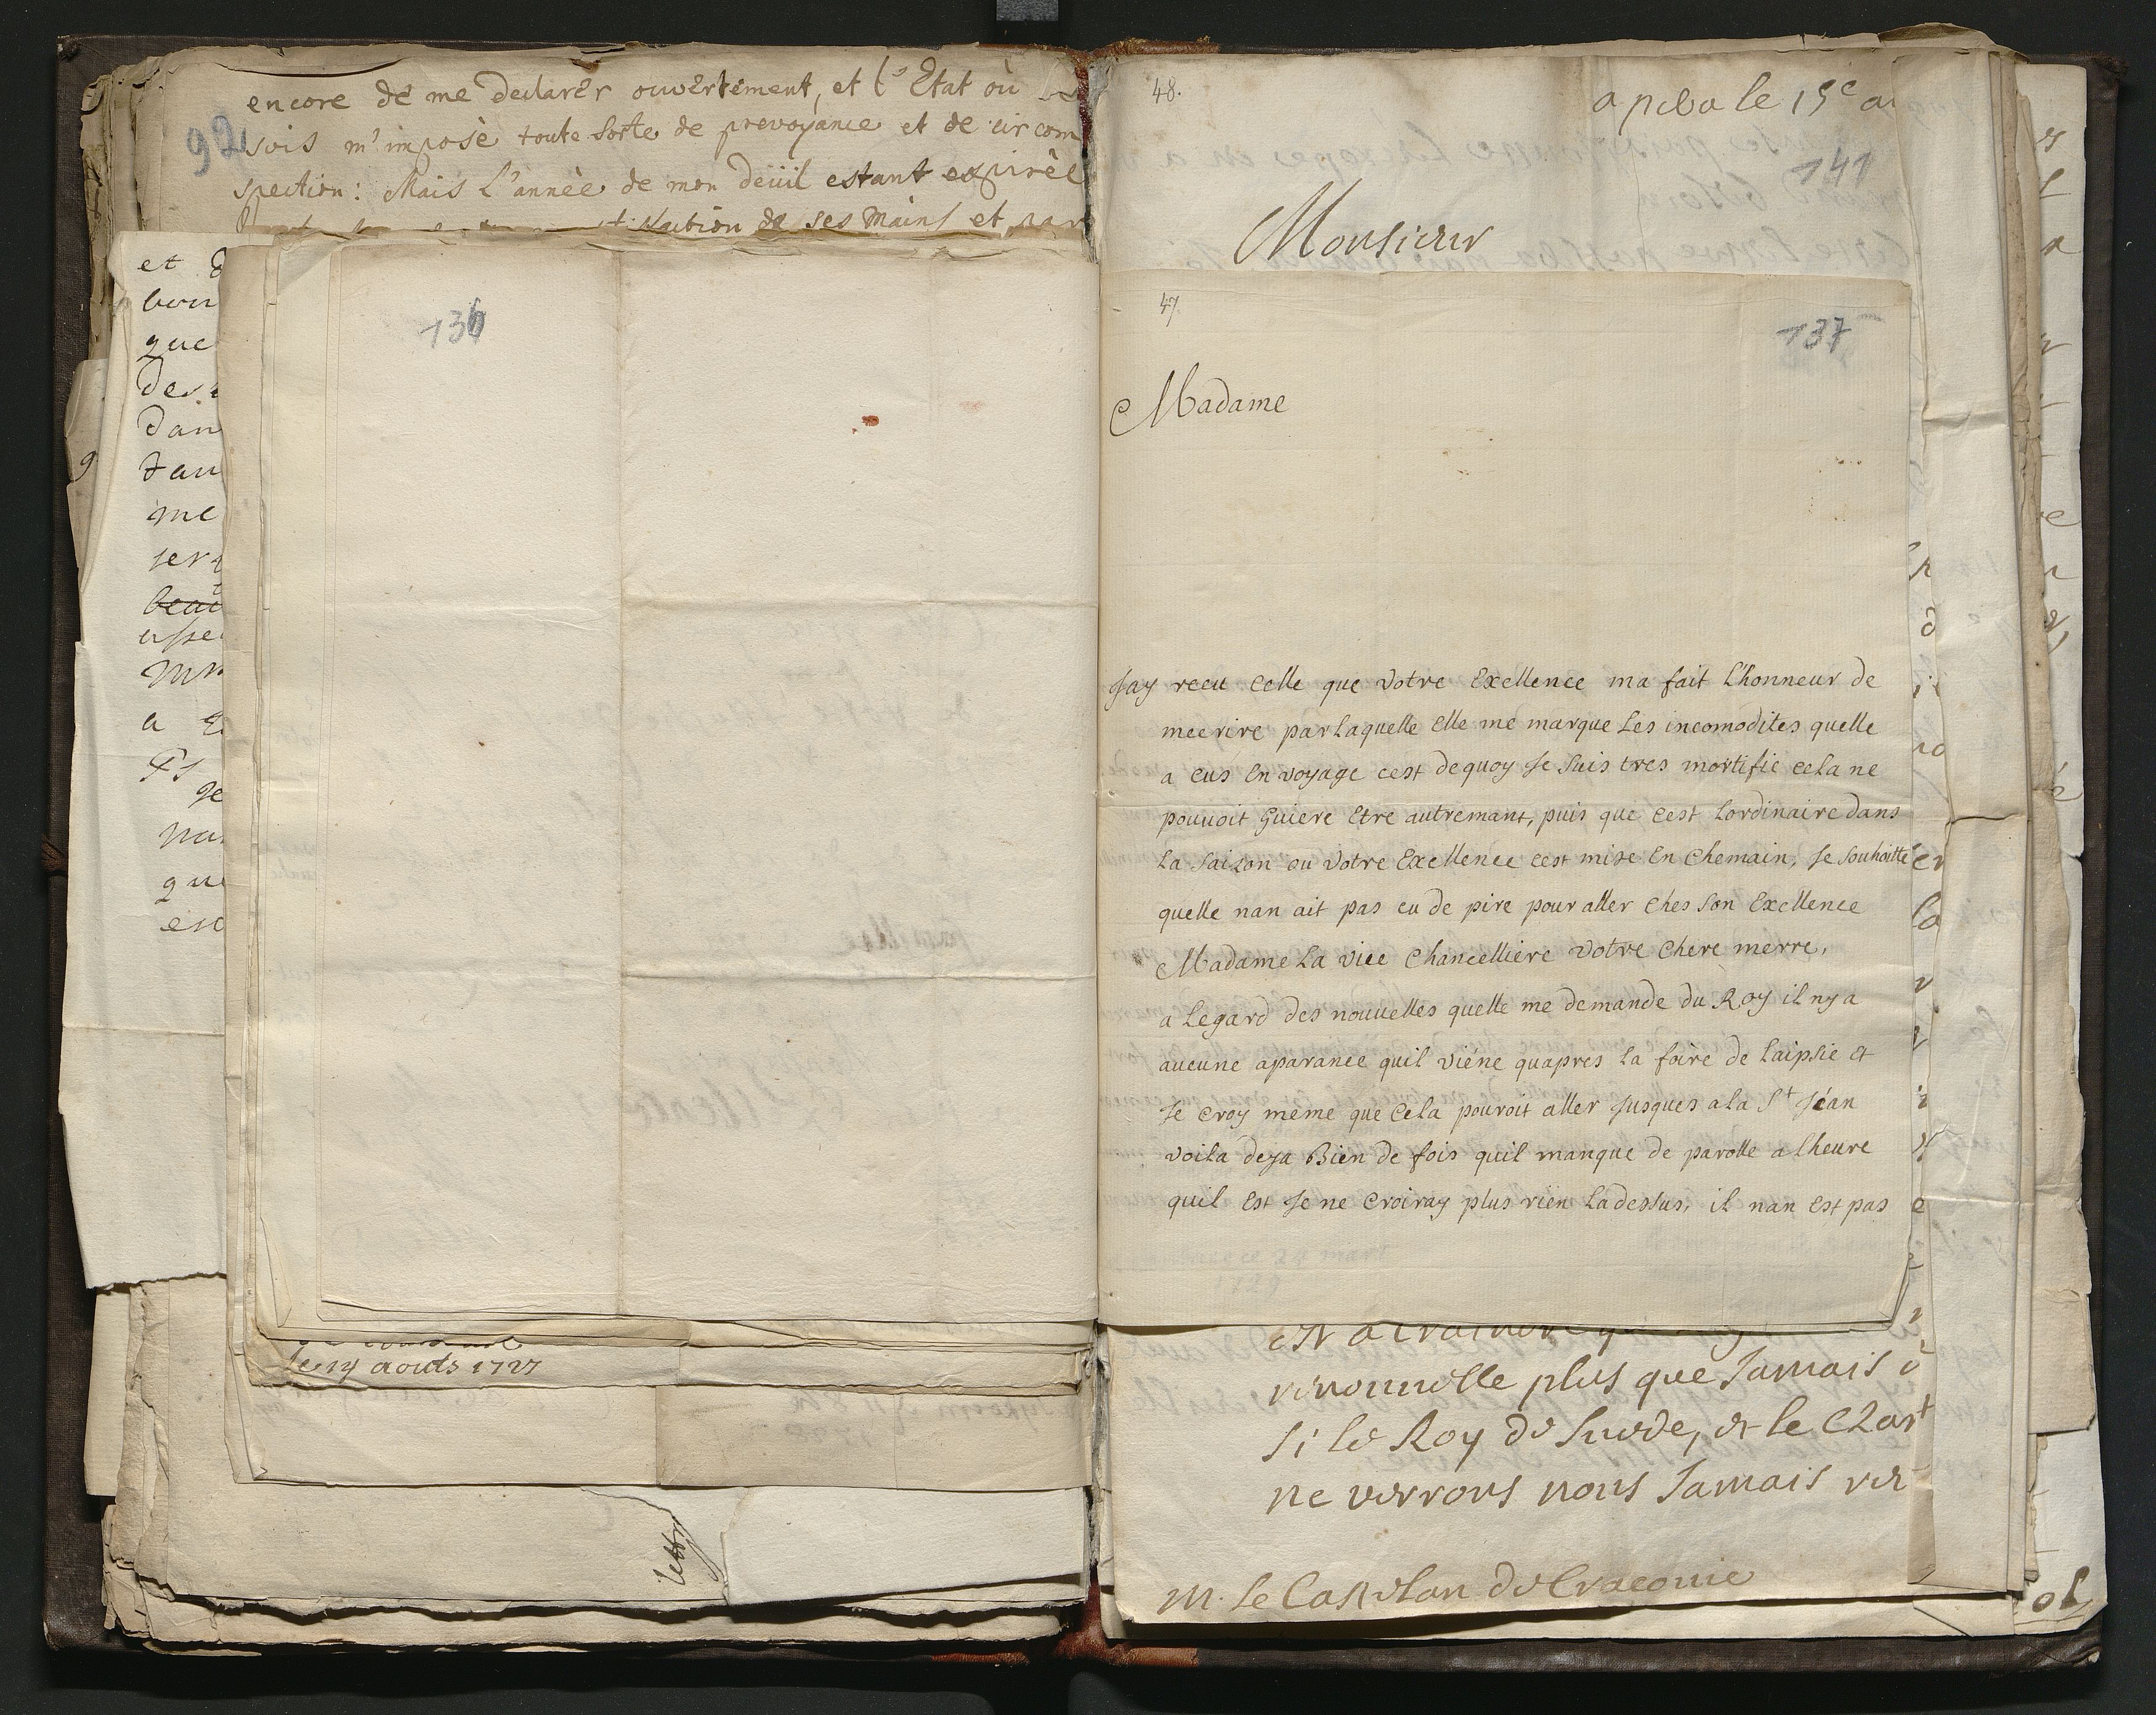 encore de me declarer ouvertement, et l'Etat où
92
suis m'impose toute sorte de prevoyance et de circom
spection: Mais L'année de mon deüil estant expirée
de ses Mains et par
et
que
Des
Dan
me
a
que
136
le 14 aouts 1727
lettr
48.
le 15e a
141
Monsieur
47.
137
Madame
Jay receu celle que votre Exellence ma fait L'honneur de
mecrire par Laquelle Elle me marque Les incomodites quelle
a eus En voyage cest dequoy Je suis tres mortifie cela ne
pouuoit Guiere Etre autremant, puis que cest Lordinaire dans
La saizon ou votre Exellence cest mise En chemain, Je souhaitte
quelle nan ait pas eu de pire pour aller ches son Exellence
Madame La vice Chancelliere votre chere merre,
a Legard des nouuelles quelle me demande du Roy il ny a
aucune aparance quil viéne quapres la foire de Laipsie et
Je croy meme que cela pouroit aller Jusques a la St Jéan
voila deja Bien de fois quil manque de parolle a lheure
quil Est Je ne croiray plus rien Ladessus, il nan Est pas
plus que Jamais
si le Roy de Suede, et le Czar
ne verrons nous Jamais
M. Le Castelan de Cracovie